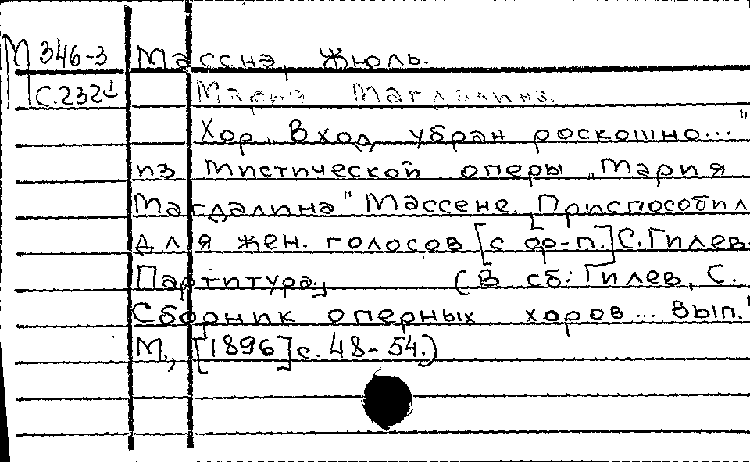 М 346-3 Масснэ, Жюль.
С.232
Мария Магдалина.
Хор „Вход убран роскошно..."
из мистической оперы „Мария
Магдалина" Массене. Приспособил
для жен. голосов [с ф-п.] С. Гилев.
Партитура, (В сб: Гилев, С.
Сборник оперных хоров... Вып.
М, [1896] с. 48-54.)